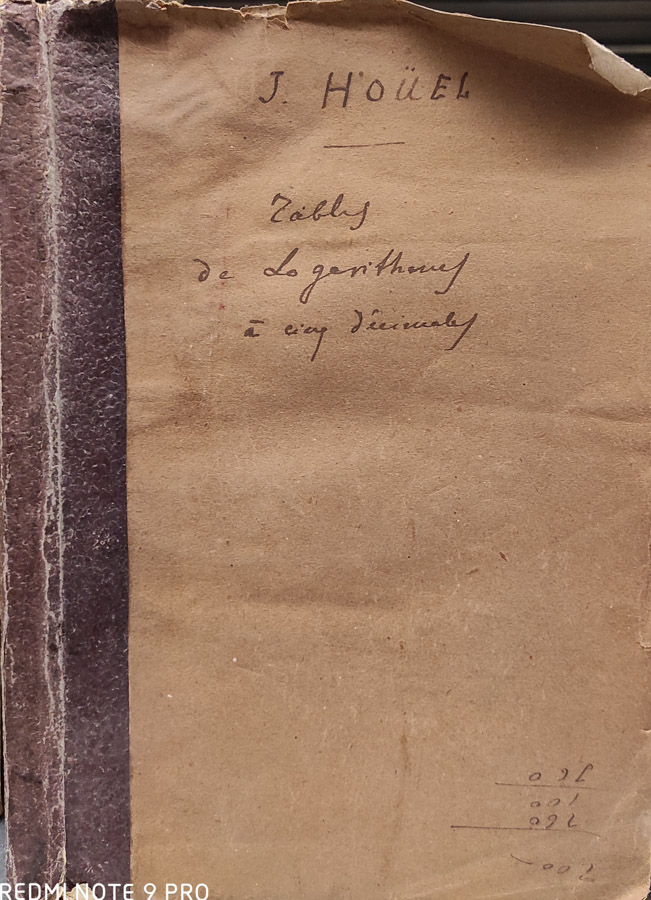 J. HOÜEL
Tables
de Logarithmes
à cinq décimales
REDMI NOTE 9 PRO